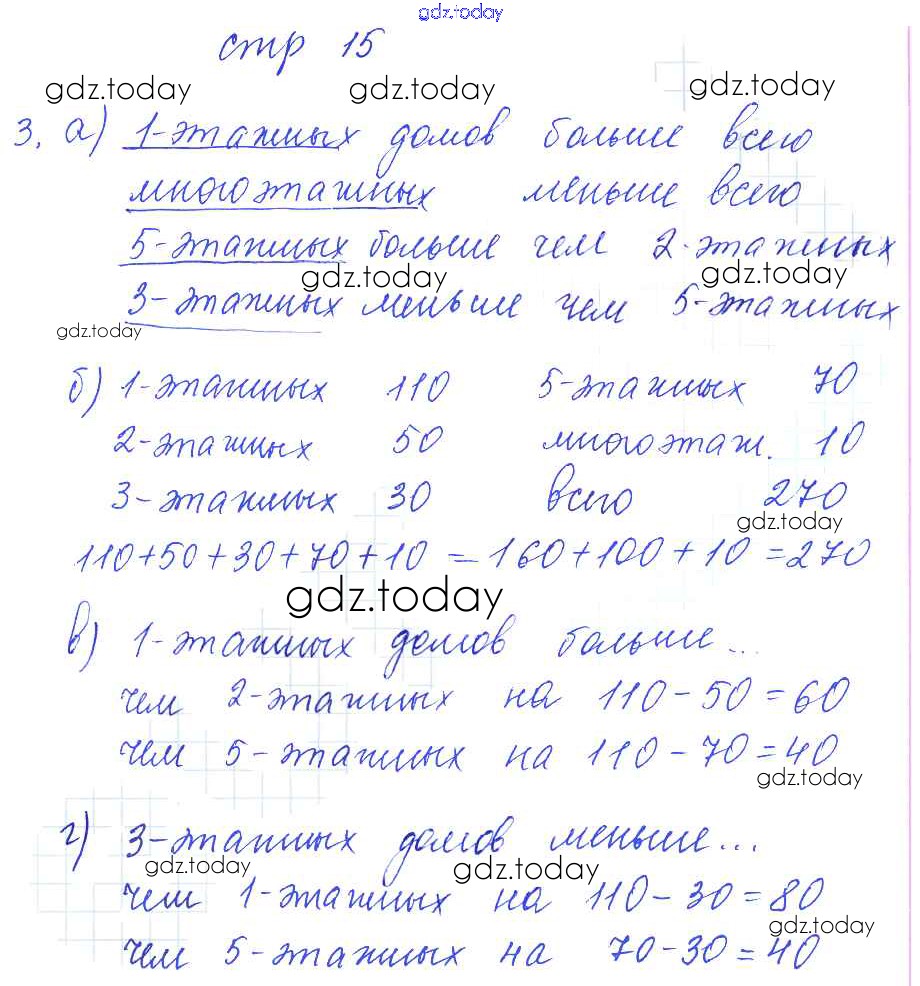 gdz.today
стр 15
gdz.today gdz.today gdz.today
3. а) 1-этажных домов больше всего
многоэтажных меньше всего
5-этажных больше чем 2-этажных
gdz.today gdz.today
3-этажных меньше чем 5-этажных
gdz.today
б) 1-этажных 110 5-этажных 70
2-этажных 50 многоэтаж. 10
3-этажных 30 всего 270
gdz.today
110+50+30+70+10=160+100+10=270
gdz.today
в) 1-этажных домов больше...
чем 2-этажных на 110-50=60
чем 5-этажных на 110-70=40
gdz.today
г) 3-этажных домов меньше...
gdz.today gdz.today
чем 1-этажных на 110-30=80
gdz.today
чем 5-этажных на 70-30=40